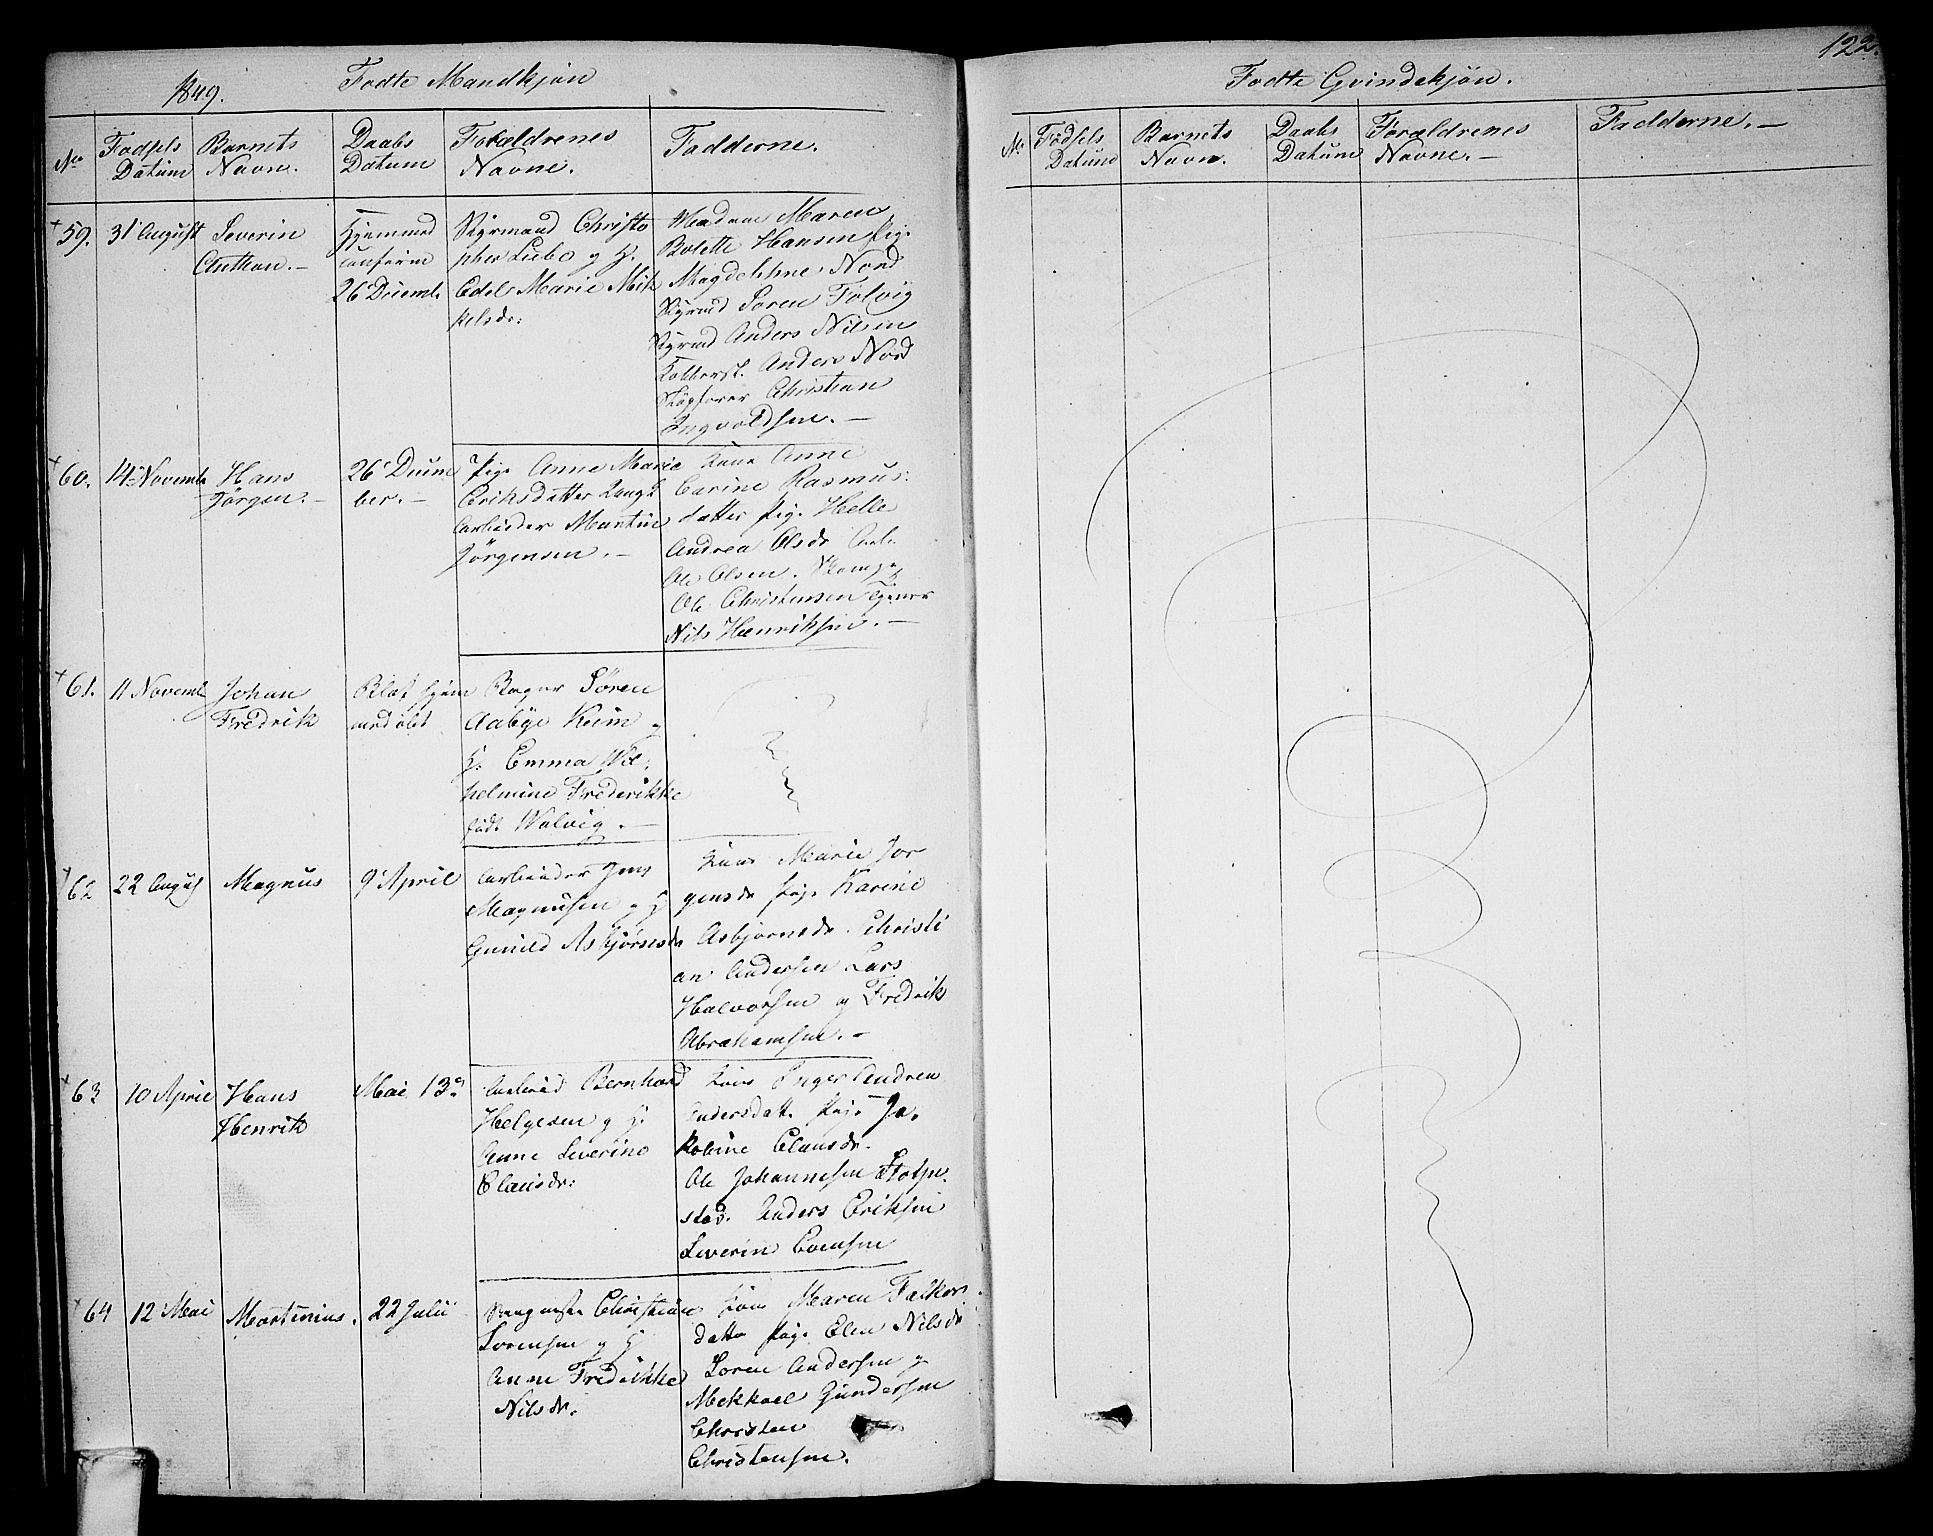 1849.
Fødte Mandkjøn
No
Fødsels Datum
Barnets Navn.
Daabs Datum
Forældrenes Navne.
Fadderne.
59.
31 August
Severin
Anthon.
Hjemmed
confirm
26 Decemb.
Christo
pher Lubo og H.
Edel Marie Mik
kelsdr:
Madam Maren
Bolette Hansen Pig.
Magdelhne Nord
Søren Folvig
Anders Nilsen
Anders Nord
Christian
Ingvoldsen. –
60.
14 Novemb
Hans
Jørgen. –
26 Decem
ber. –
Pige Anne Marie
Eriksdatter Ungk.
Arbeider Martin
Jørgensen. –
Kone Anne
Carine Rasmus:
datter Pig. Helle
Andrea Olsdr Arb.
Ole Olsen.
Ole Christensen Tjener
Nils Henriksen. –
61.
11 Novemb
Johan
Fredrik
Blot hjem
med øbt
Bager Søren
Aabye Keim og
H. Emma Wil.
helmine Frederikke
født Walvig. –
62
22 August
Magnus
9 April
Arbeider Jens
Magnusen og H
Gunild Asbjørnsdr
Kone Marie Jør
gensdr Pige Karine
Asbjørnsdr. Christi
an Andersen Lars
Halvorsen og Fredrik
Abrahamsen. –
63
10 April
Hans
Henrik
Mai 13de
Arbeid Bernhard
Helgesen og H.
Anne Severine
Clausdr:
Kone Inger Andrea
Andersdatt. Pige Ja.
kobine Clausdr.
Ole Johannesen
Anders Eriksen
Severin Evensen
64
12 Mai
Martinius.
22 Julii
Christian
Sørensen og H
Anne Fredrikke
Nilsdr.
Kone Maren Falkors
datte Pige Elen Nilsdr
Søren Andersen og
Mekkael Gundersen
Christen
Christensen.
122.
Fødte Qvindekjøn.
No
Fødsels Datum
Barnets Navn.
Daabs Datum
Forældrenes Navne. –
Fadderne. –